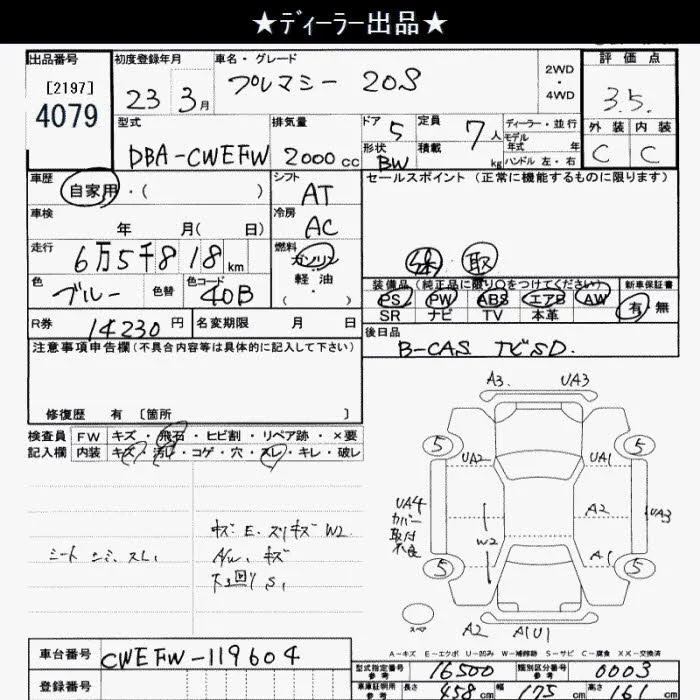 ★ディーラー出品★
出品番号 初度登録年月 車名・グレード 評価点
[2197]
4079
23年3月 プレマシー 20S 2WD・4WD 3.5.
型式 排気量 ドア 5 定員 7人 ディーラー・並行 外装 内装
DBA-CWEFW 2000cc 形状 BW 積載 kg モデル年式 年 ハンドル 左・右 C C
車歴 自家用・( ) シフト AT セールスポイント (正常に機能するものに限ります)
車検 年 月( 日) 冷房 AC
走行 6万5千818km 燃料 ガソリン 軽油 ( ・ ) 取
色 ブルー 色替 色コード 40B
装備品 (純正品に限り○をつけてください) 新車保証書
PS PW ABS エアB AW 有 無
SR ナビ TV 本革
R券 14230円 名変期限 月 日 後日品
B-CAS TビSD.
注意事項申告欄(不具合内容等は具体的に記入して下さい)
修復歴 有 〔箇所 〕
検査員 FW キズ・飛石・ヒビ割・リペア跡・×要
記入欄 内装 キズ・汚れ・コゲ・穴・スレ・キレ・破レ
シート シミ、スレ、
キズ E. スリキズ W2
A/w、キズ
下回り S,
A3. UA3
5 5
UA2 UA1
UA4
カバー
取付
不良
A2 UA3
W2
A1
5 5
スペア A2 A1(U1)
A-キズ E-エクボ U-凹み W-補修跡 S-サビ C-腐食 XX-交換済
車台番号 CWEFW-119604
登録番号
型式指定番号 参考 16500 類別区分番号 参考 0003
車庫証明用 参考 長さ 458cm 幅 175cm 高さ 161cm